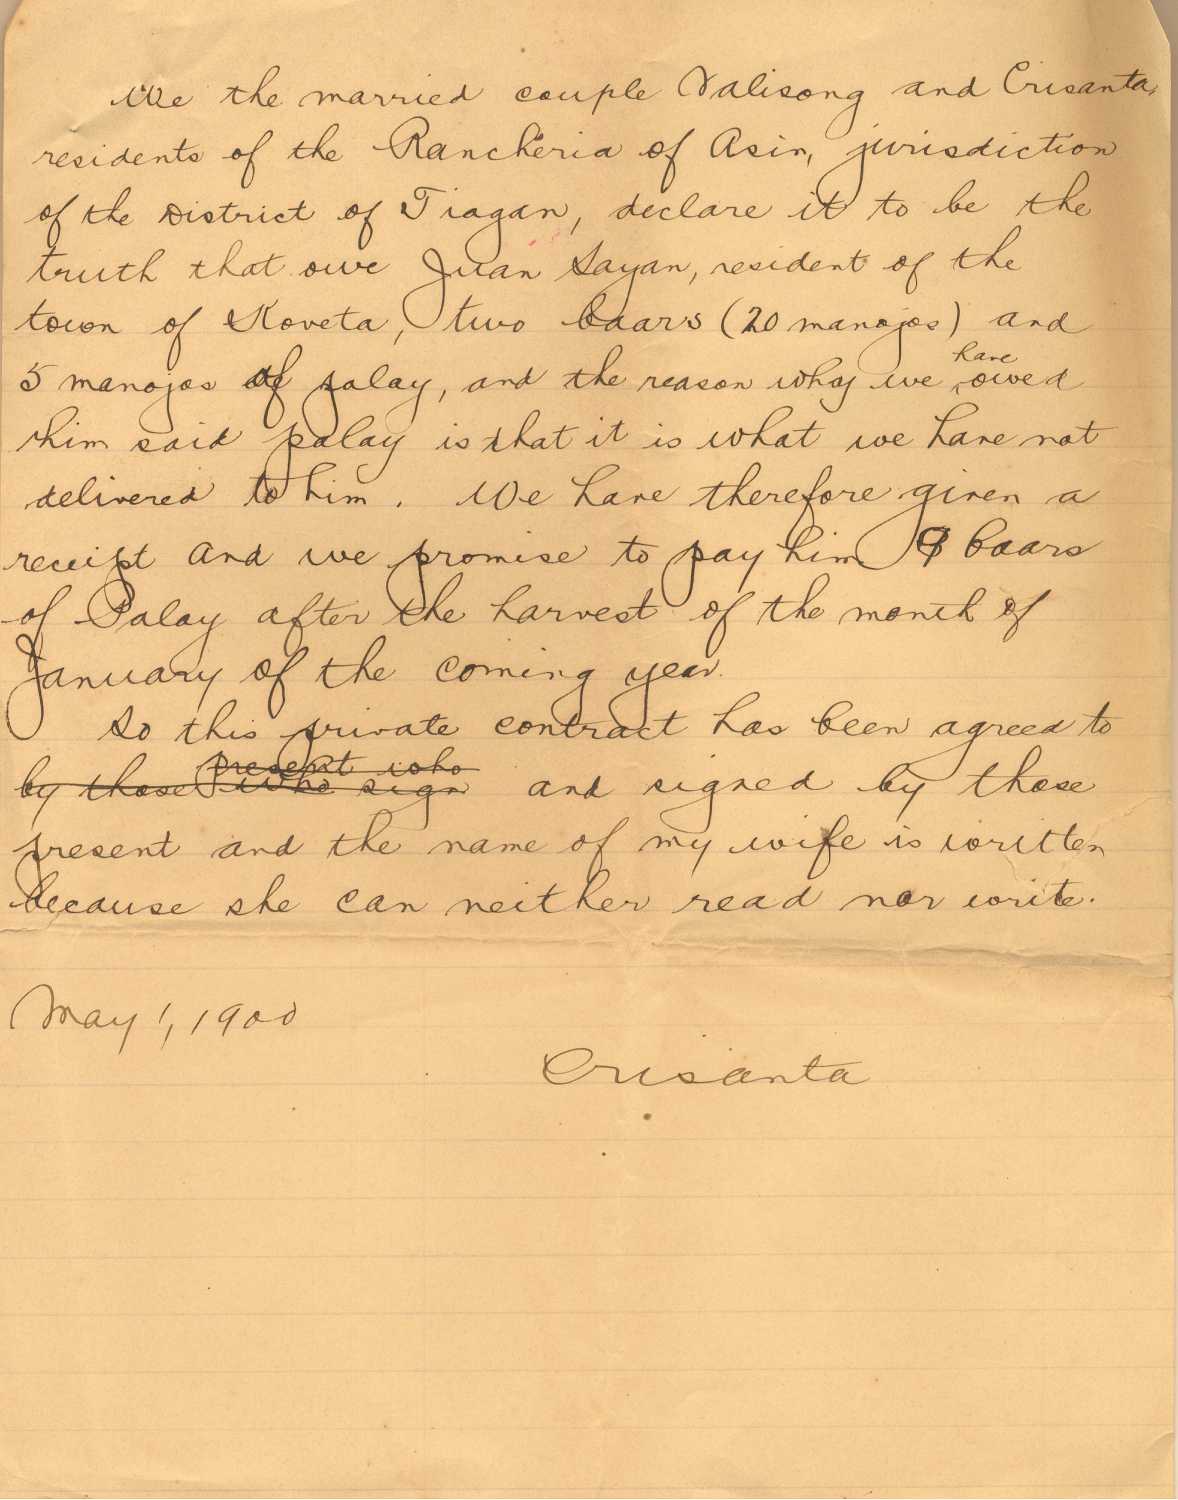 We the married couple Valisong and Crisanta,
residents of the Rancheria of Asin, jurisdiction
of the District of Tiagan, declare it to be the
truth that owe Juan Sayan, resident of the
town of Koveta, two baars (20 manojos) and
5 manojos of palay, and the reason why we have owed
him said palay is that it is what we have not
delivered to him. We have therefore given a
receipt and we promise to pay him 9 baars
of Palay after the harvest of the month of
January of the coming year.
So this private contract has been agreed to
present who
by those who sign and signed by those
present and the name of my wife is written
because she can neither read nor write.
May 1, 1900
Crisanta